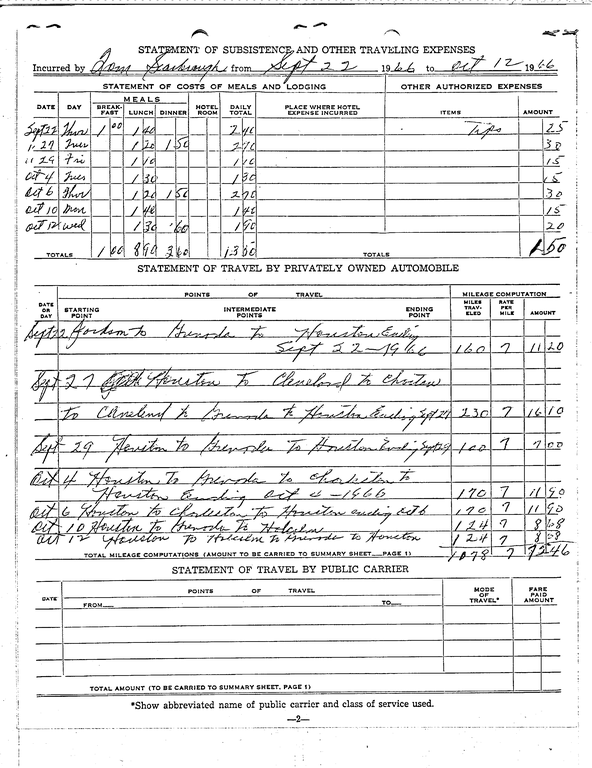 STATEMENT OF SUBSISTENCE AND OTHER TRAVELING EXPENSES
Incurred by Tom Scarbrough from Sept 22 1966 to Oct 12 1966
STATEMENT OF COSTS OF MEALS AND LODGING OTHER AUTHORIZED EXPENSES
MEALS
DATE DAY BREAK-FAST LUNCH DINNER HOTEL ROOM DAILY TOTAL PLACE WHERE HOTEL EXPENSE INCURRED ITEMS AMOUNT
Sept 22 Thur 1 00 1 40 2 40 Tips 25
" 27 Tues 1 20 1 50 2 70 30
" 29 Fri 1 10 1 10 15
Oct 4 Tues 1 30 1 30 15
Oct 6 Thur 1 20 1 50 2 70 30
Oct 10 Mon 1 40 1 40 15
Oct 12 Wed 1 30 60 1 90 20
TOTALS 1 00 8 90 3 60 13 50 TOTALS 1 50
STATEMENT OF TRAVEL BY PRIVATELY OWNED AUTOMOBILE
POINTS OF TRAVEL MILEAGE COMPUTATION
DATE OR DAY STARTING POINT INTERMEDIATE POINTS ENDING POINT MILES TRAV-ELED RATE PER MILE AMOUNT
Sept 22 Jackson to Grenada to Houston Ending
Sept 22-1966 160 7 11 20
Sept 27 Houston to Cleveland to
to Cleveland to Grenada to Houston Ending Sept 230 7 16 10
Sept 29 Houston to Grenada to Houston Ending Sept 29 100 7 7 00
Oct 4 Houston to Grenada to Charleston to
Houston Ending Oct 4-1966 170 7 11 90
Oct 6 Houston to Charleston to Houston ending Oct 6 170 7 11 90
Oct 10 Houston to Grenada to Holcolm 124 7 8 68
Oct 12 Houston to Holcolm to Grenada to Houston 124 7 8 68
TOTAL MILEAGE COMPUTATIONS (AMOUNT TO BE CARRIED TO SUMMARY SHEET—PAGE 1) 1078 7 75 46
STATEMENT OF TRAVEL BY PUBLIC CARRIER
DATE POINTS OF TRAVEL MODE OF TRAVEL* FARE PAID AMOUNT
FROM TO
TOTAL AMOUNT (TO BE CARRIED TO SUMMARY SHEET, PAGE 1)
*Show abbreviated name of public carrier and class of service used.
—2—